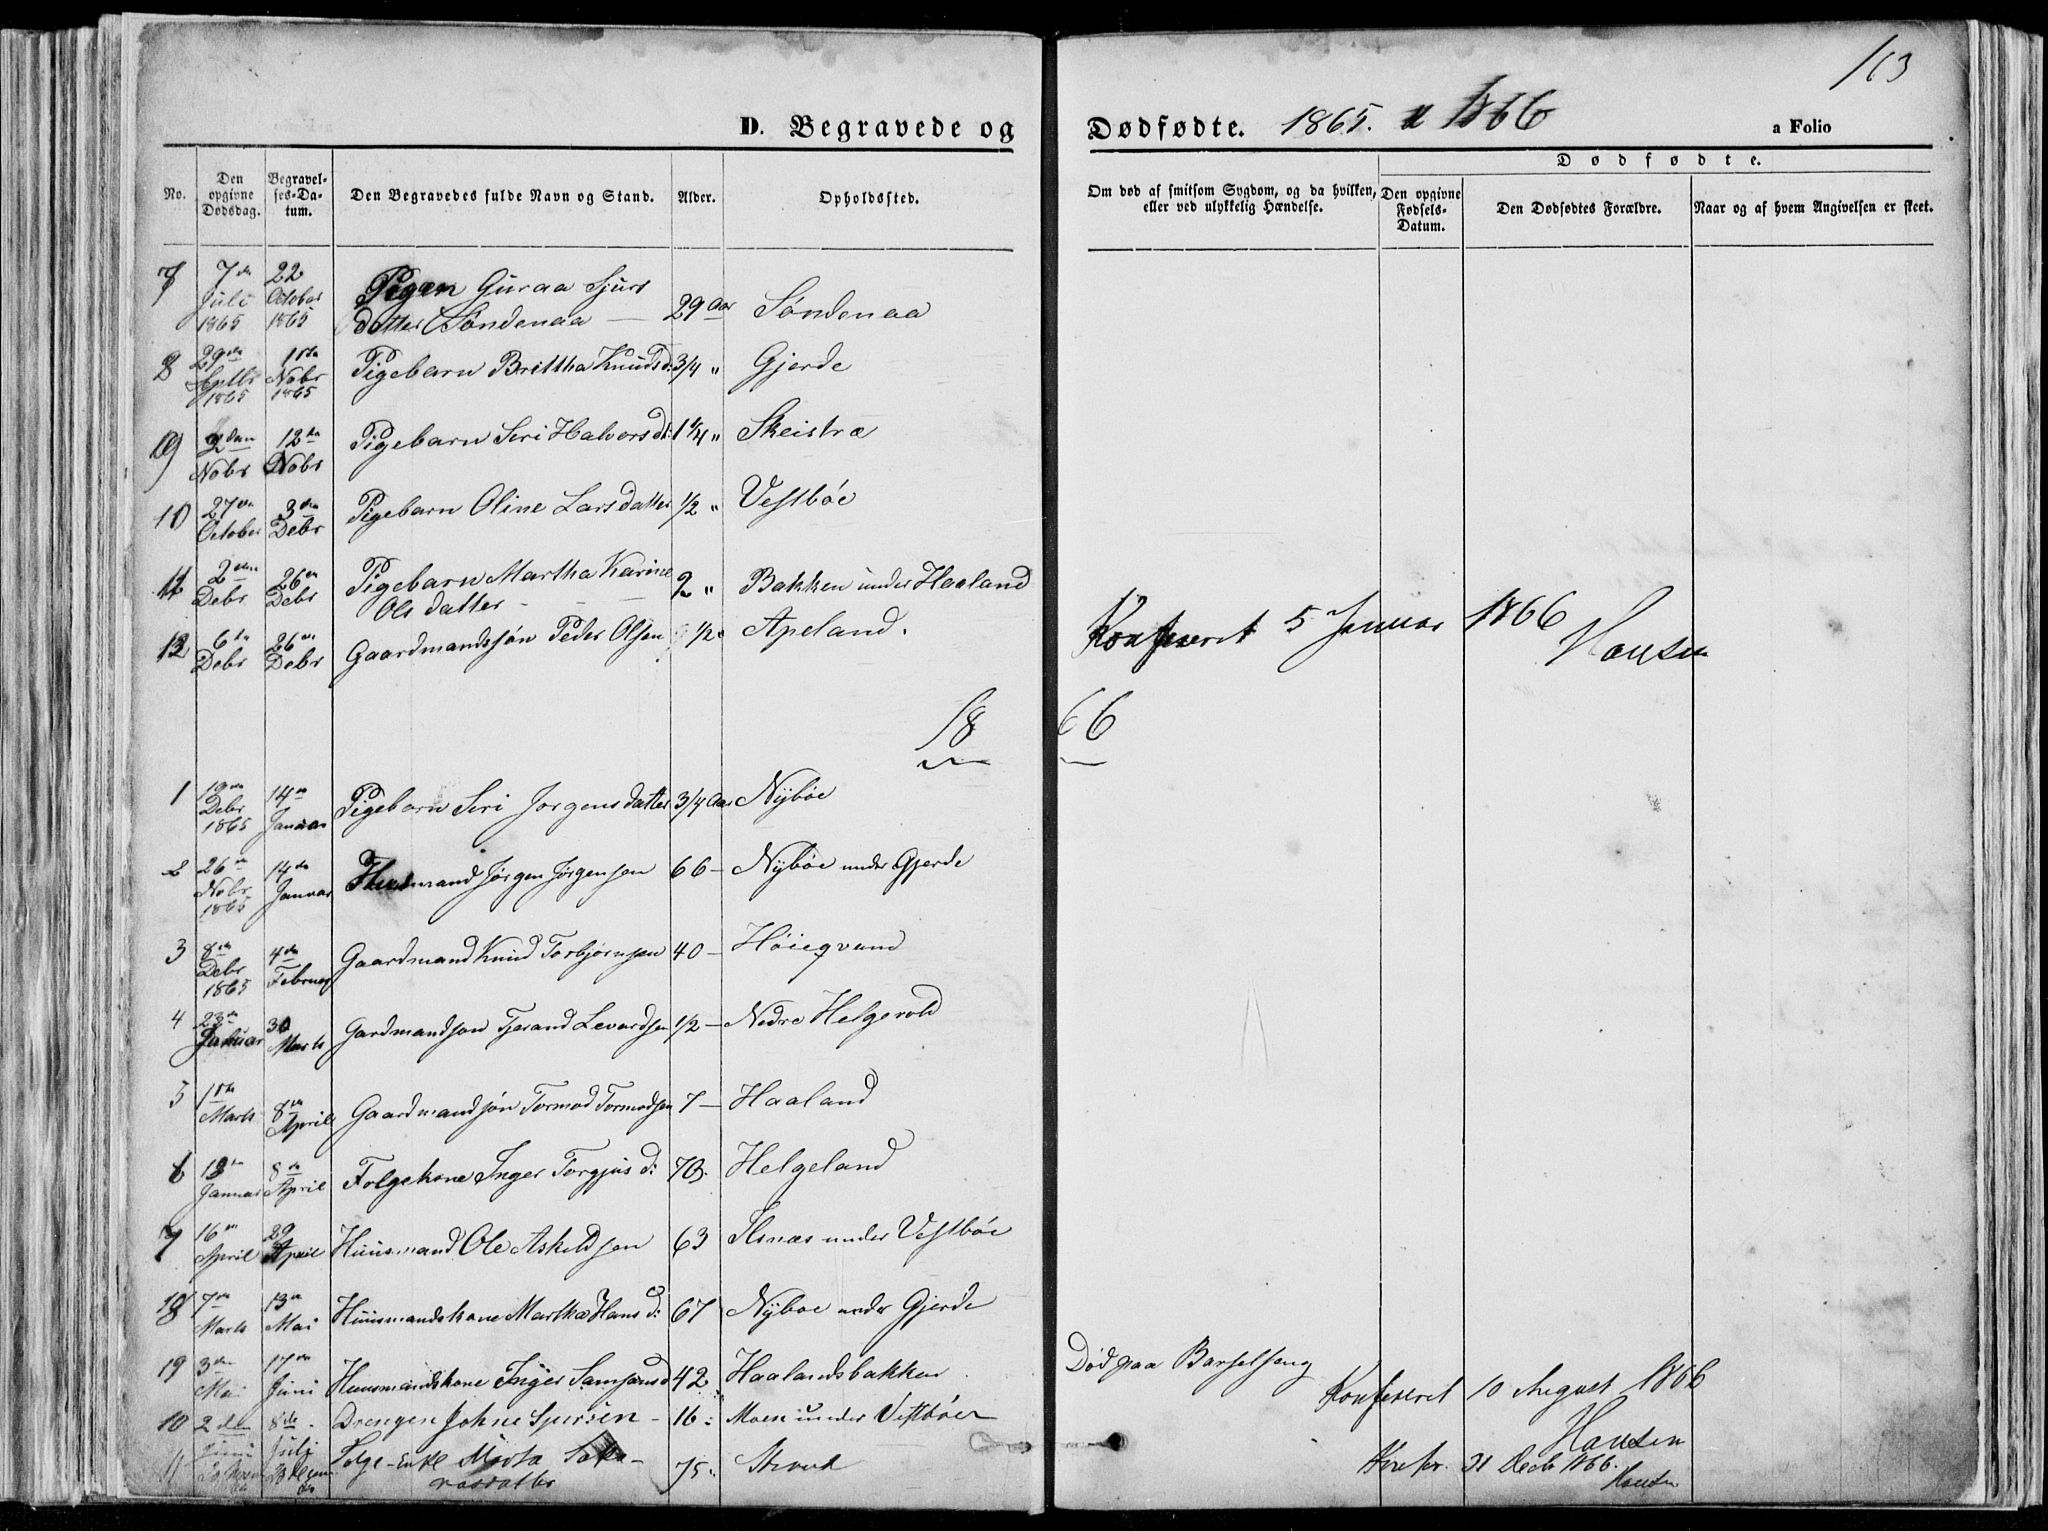 113
D. Begravede og Dødfødte. 1865. & 1866
a Folio
No.
Den opgivne Dødsdag.
Begravelses-Datum.
Den Begravedes fulde Navn og Stand.
Alder.
Opholdssted.
Om død af smitsom Sygdom, og da hvilken, eller ved ulykkelig Hændelse.
Dødfødte.
Den opgivne Fødsels-Datum.
Den Dødfødtes Forældre.
Naar og af hvem Angivelsen er skeet.
7 7de Juli 1865 22 October 1865 Pigen Guraa Sjurs
datter Søndenaa — 29 Aar Søndenaa
8 29de Septbr 1865 1ste Nobr 1865 Pigebarn Brittha Knudsd: 3/4 " Gjerde
9 2den Nobr 12te Nobr Pigebarn Seri Halvorsdt: 1 1/4 " Skeistræ
10 27de October 3die Debr Pigebarn Oline Larsdatter 1/2 " Vestbøe
11 2den Debr 26de Debr Pigebarn Martha Karine
Olsdatter - 2 " Bakken under Haaland
12 6te Debr 26de Debr Gaardmandssøn Peder Olsen 1/2 Apeland.
Konfereret 5 Januar 1866
Hansen
1866
1 19de Debr 1865 14de Januar Pigebarn Seri Jørgensdatter 3/4 Aar Nybøe
2 26de Nobr 1865 14de Januar Huusmand Jørgen Jørgensen 66 — Nybøe under Gjerde
3 8de Debr 1865 4de Februar Gaardmand Knud Torbjørnsen 40 — Høiegvam
4 23de Januar 30 Marts Gardmandsøn Tjerand Levardsen 1/2 — Nedre Helgevold
5 1ste Marts 8de April Gaardmandsøn Tormod Tormodsen 7 — Haaland
6 18de Januar 8de April Folgekone Inger Torgjusd: 73. Helgeland
7 16de April 29 April Huusmand Ole Askeldsen 63 Ilsnæs under Vestbøe
8 7de Marts 13de Mai Huusmandskone Martha Hansd: 67 Nybøe under Gjerde
9 3die Mai 17de Juni Huusmandskone Inger Samsonsd 42 Haalandsbakken
Død paa Barselseng
Konfereret 10 August 1866
Hansen
10 2den Juni 8de Julj Drengen Johne Sjursen - 16 : Moen under Vestbøe
11 Folge-Enke Marta Saka-
riasdatter 75
Konfer. 31 Decb 1866.
Hansen